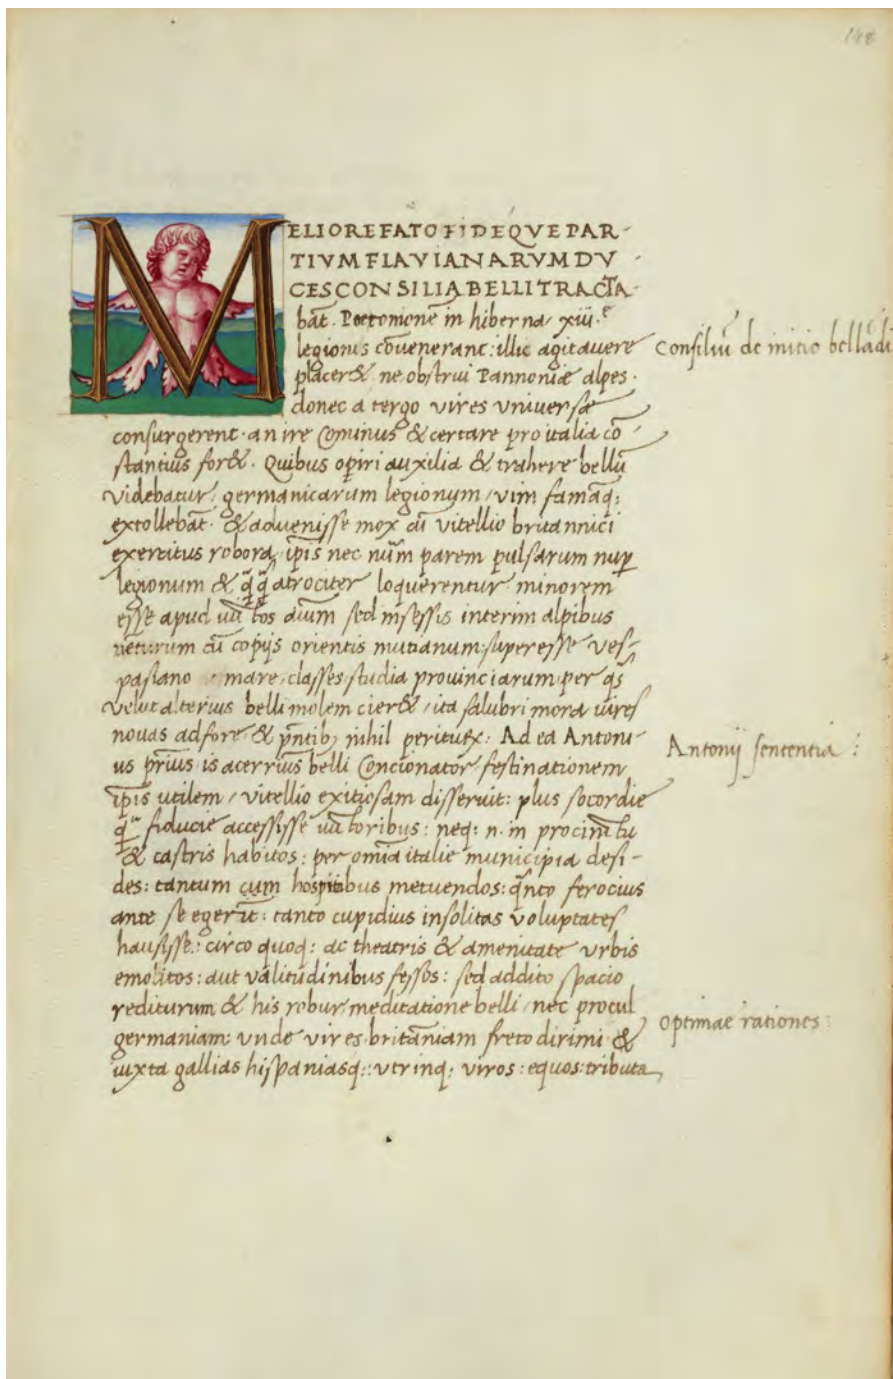 MELIORE FATO FIDEQVE PAR-
TIVM FLAVIANARVM DV-
CES CONSILIA BELLI TRACTA-
bāt. Poetomonē in hiberna xiii.ᵉ
legionis cōvenerant: illic agitavere
Consiliū de initio bellādi
placer& ne obstrui Pannoniæ alpes.
donec a tergo vires universæ
consurgerent. an ire cominus & certare pro italia cō
stantius for&. Quibus opiri auxilia & trahere bellū
videbatur: germanicarum legionum, vim famāq;
extollebāt. & advenisse mox cū vitellio britannici
exercitus robora, ip̄is nec nūm parem pulsarum nup
legionum & q̄q̄ atrociter loquerentur minorem
esse apud tos aīum sed insessis interim alpibus
ueturum cū copijs orientis mutianum: superesse ves-
pasiano mare, classes studia provinciarum: per q̄s
velut alterius belli molem cier&, ita salubri mora vires
novas adfore & p̄ntib; nihil Ad ea Antoni-
Antonij sententia:
us p̄rius is acerrius belli concionator festinationem
ip̄is utilem, vitellio exitiosam disseruit: plus socordie
q̄ fiducie accessisse toribus: neq; n. in procinctu
& castris habitos: per omīa italie municipia desi-
des: tantum cum hospitibus metuendos: q̄nto ferocius
ante se egerīt: tanto cupidius insolitas voluptates
hausisse: circo quoq; ac theatris & amenitate urbis
emolitos: aut valitudinibus fessos: sed addito spacio
rediturum & his robur meditatione belli, nec procul
optimae rationes:
germaniam: unde vires britāniam freto dirimi &
iuxta gallias hispaniasq;: utrinq; viros: equos: tributa,